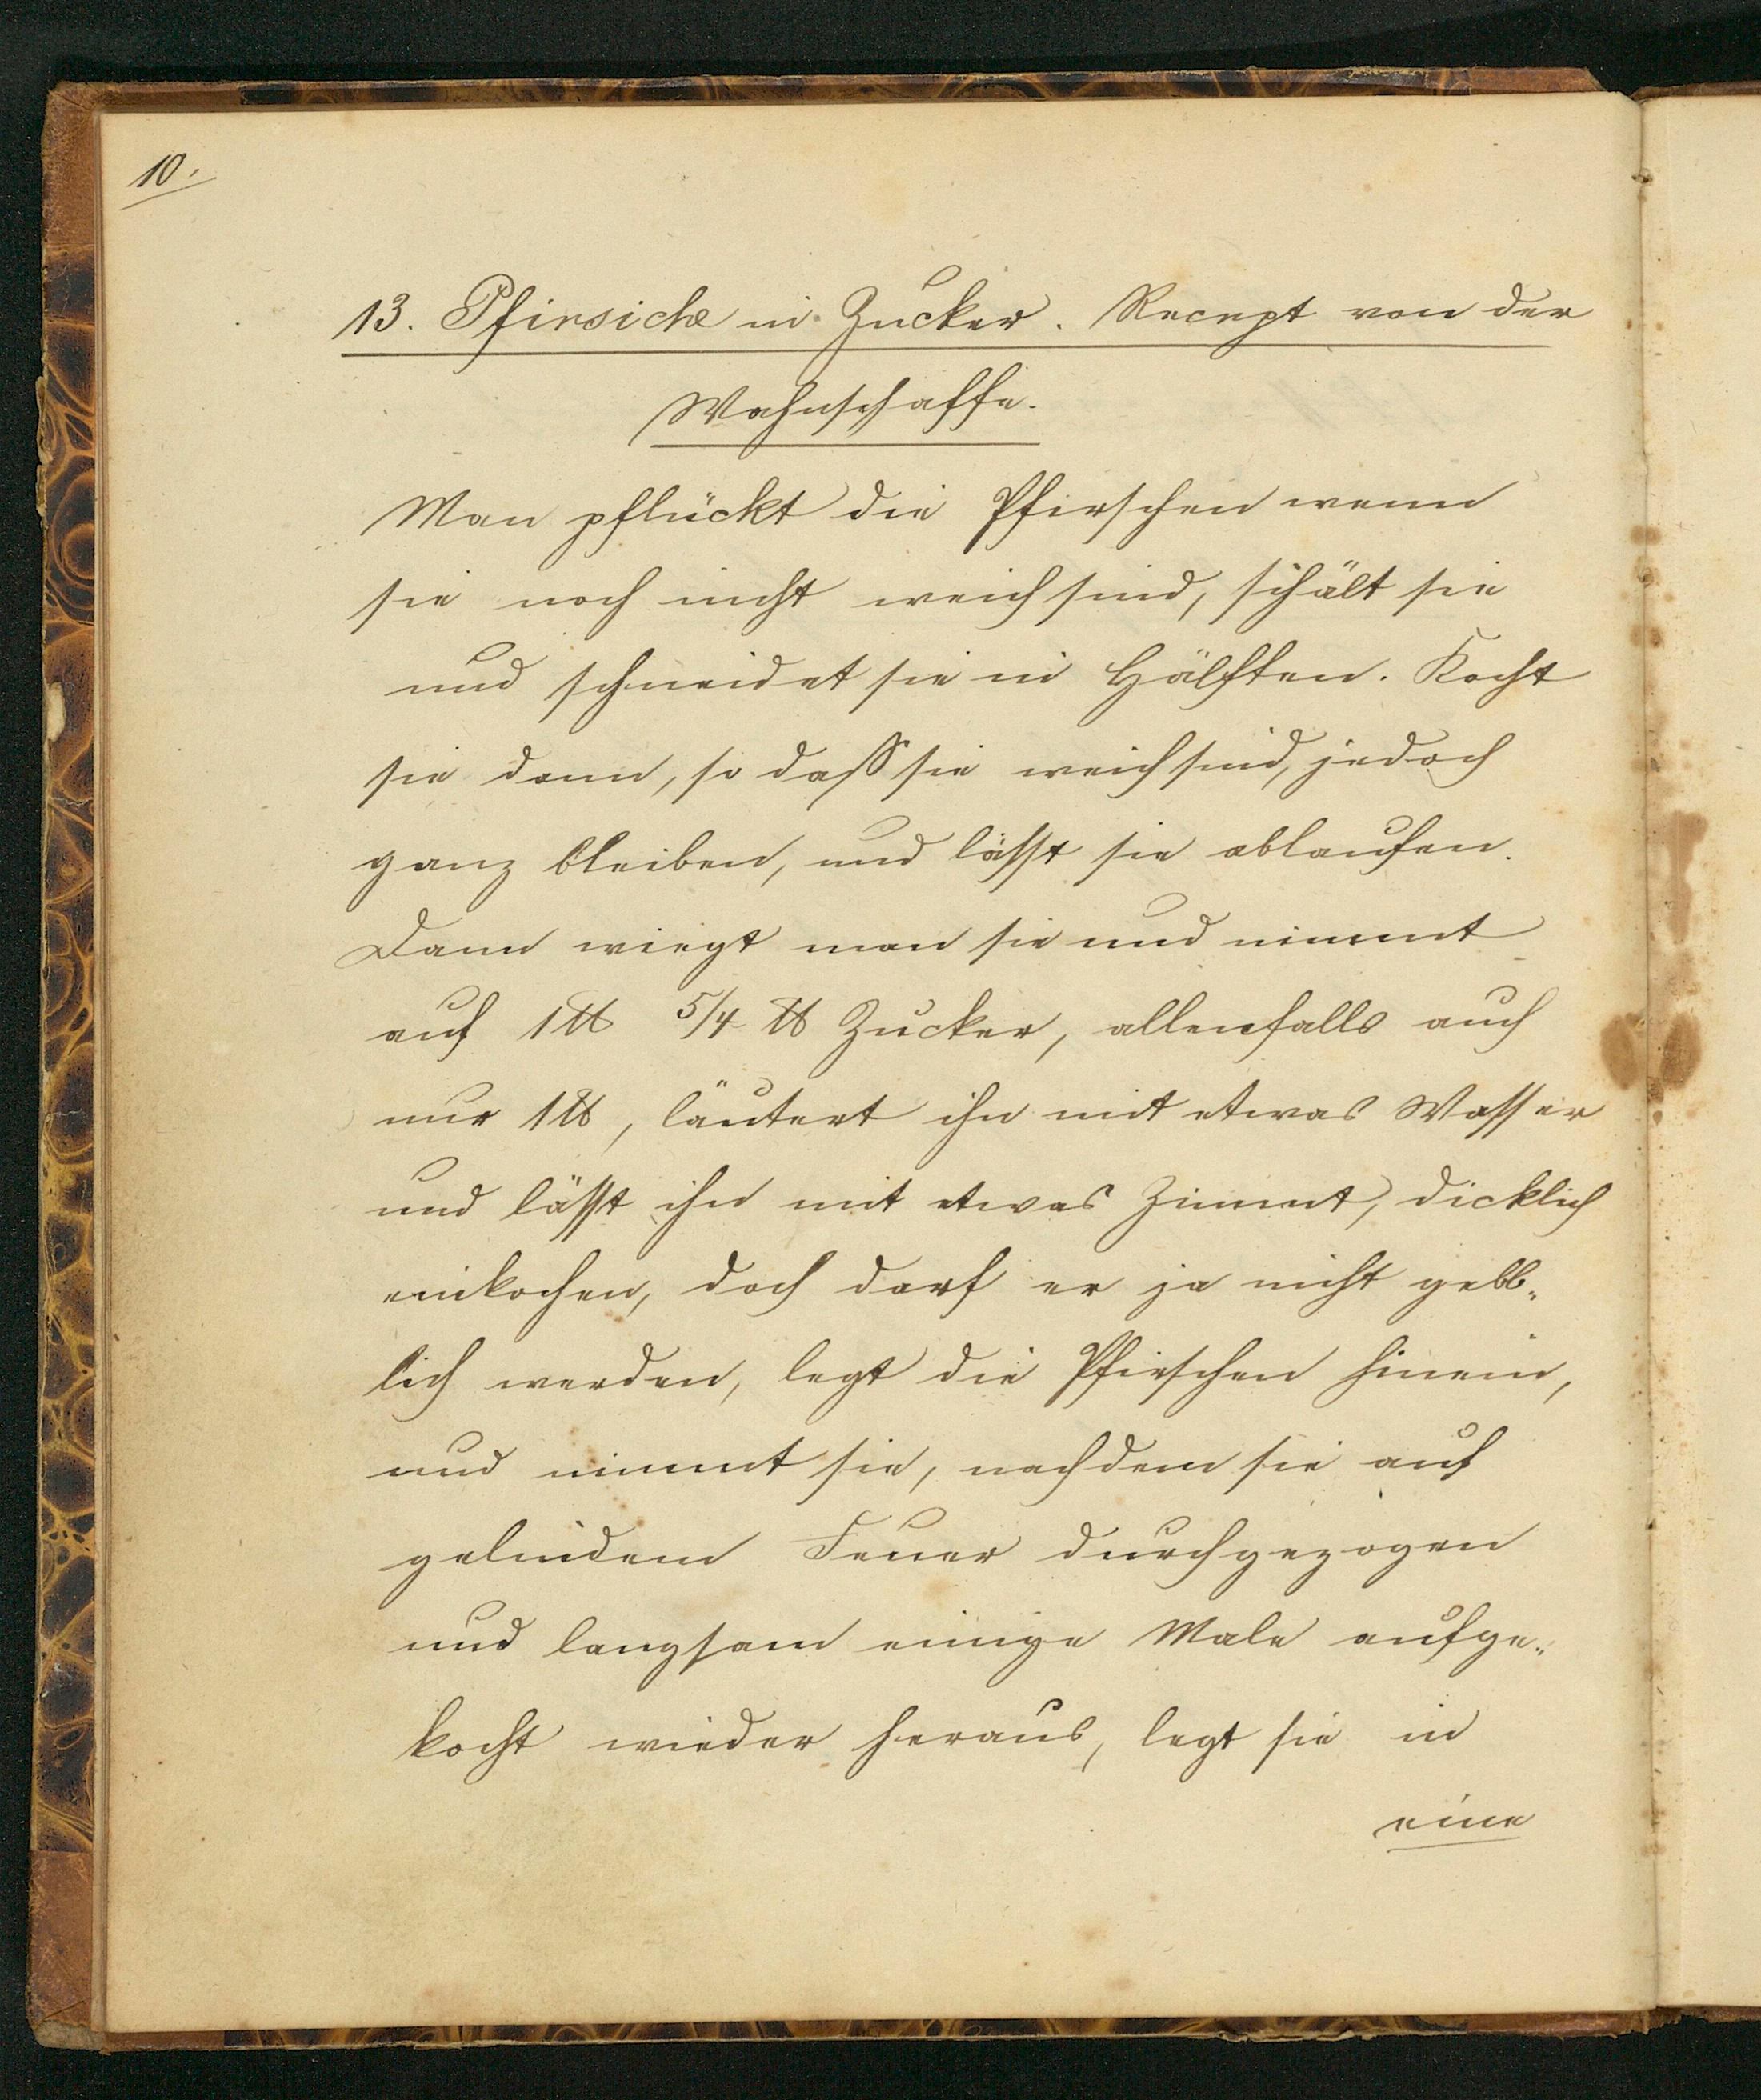 10.
13. Pfirsiche in Zucker. Recept von der
Wahnschaffe.
Man pflückt die Pfirschen wenn
sie noch nicht weich sind, schält sie
und schneidet sie in Hälften. Kocht
sie dann, so daß sie weich sind, jedoch
ganz bleiben, und läßt sie ablaufen.
Dann wiegt man sie und nimmt
auf 1 ℔ 5/4 ℔ Zucker, allenfalls auch
nur 1 ℔, läutert ihn mit etwas Wasser
und läßt ihn mit etwas Zimmt, dicklich
einkochen, doch darf er ja nicht gelb„
lich werden, legt die Pfirschen hinein,
und nimmt sie, nachdem sie auf
gelindem Feuer durchgezogen
und langsam einige Male aufge„
kocht wieder heraus, legt sie in
eine